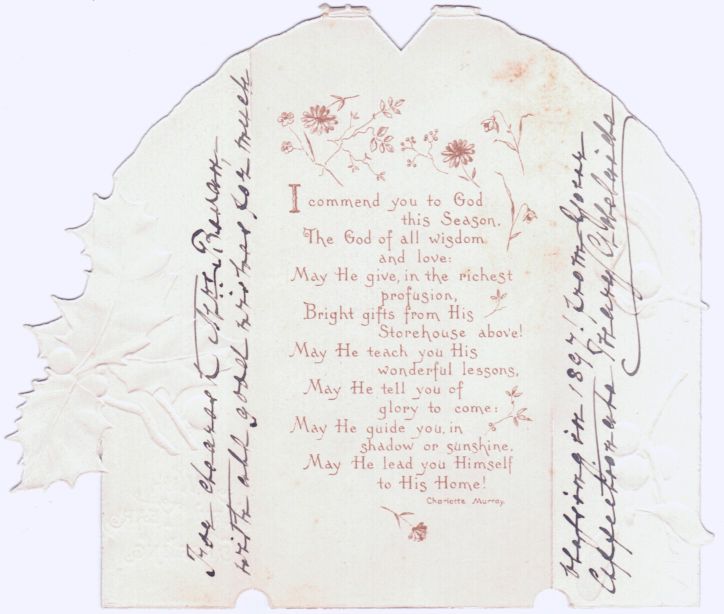 For dearest
with all good wishes for much
I commend you to God
this Season,
The God of all wisdom
and love:
May He give, in the richest
profusion,
Bright gifts from His
Storehouse above!
May He teach you His
wonderful lessons,
May He tell you of
glory to come:
May He guide you, in
shadow or sunshine,
May He lead you Himself
to His Home!
Charlotte Murray.
blessing in 1897! from your
affectionate Mary Adelaide